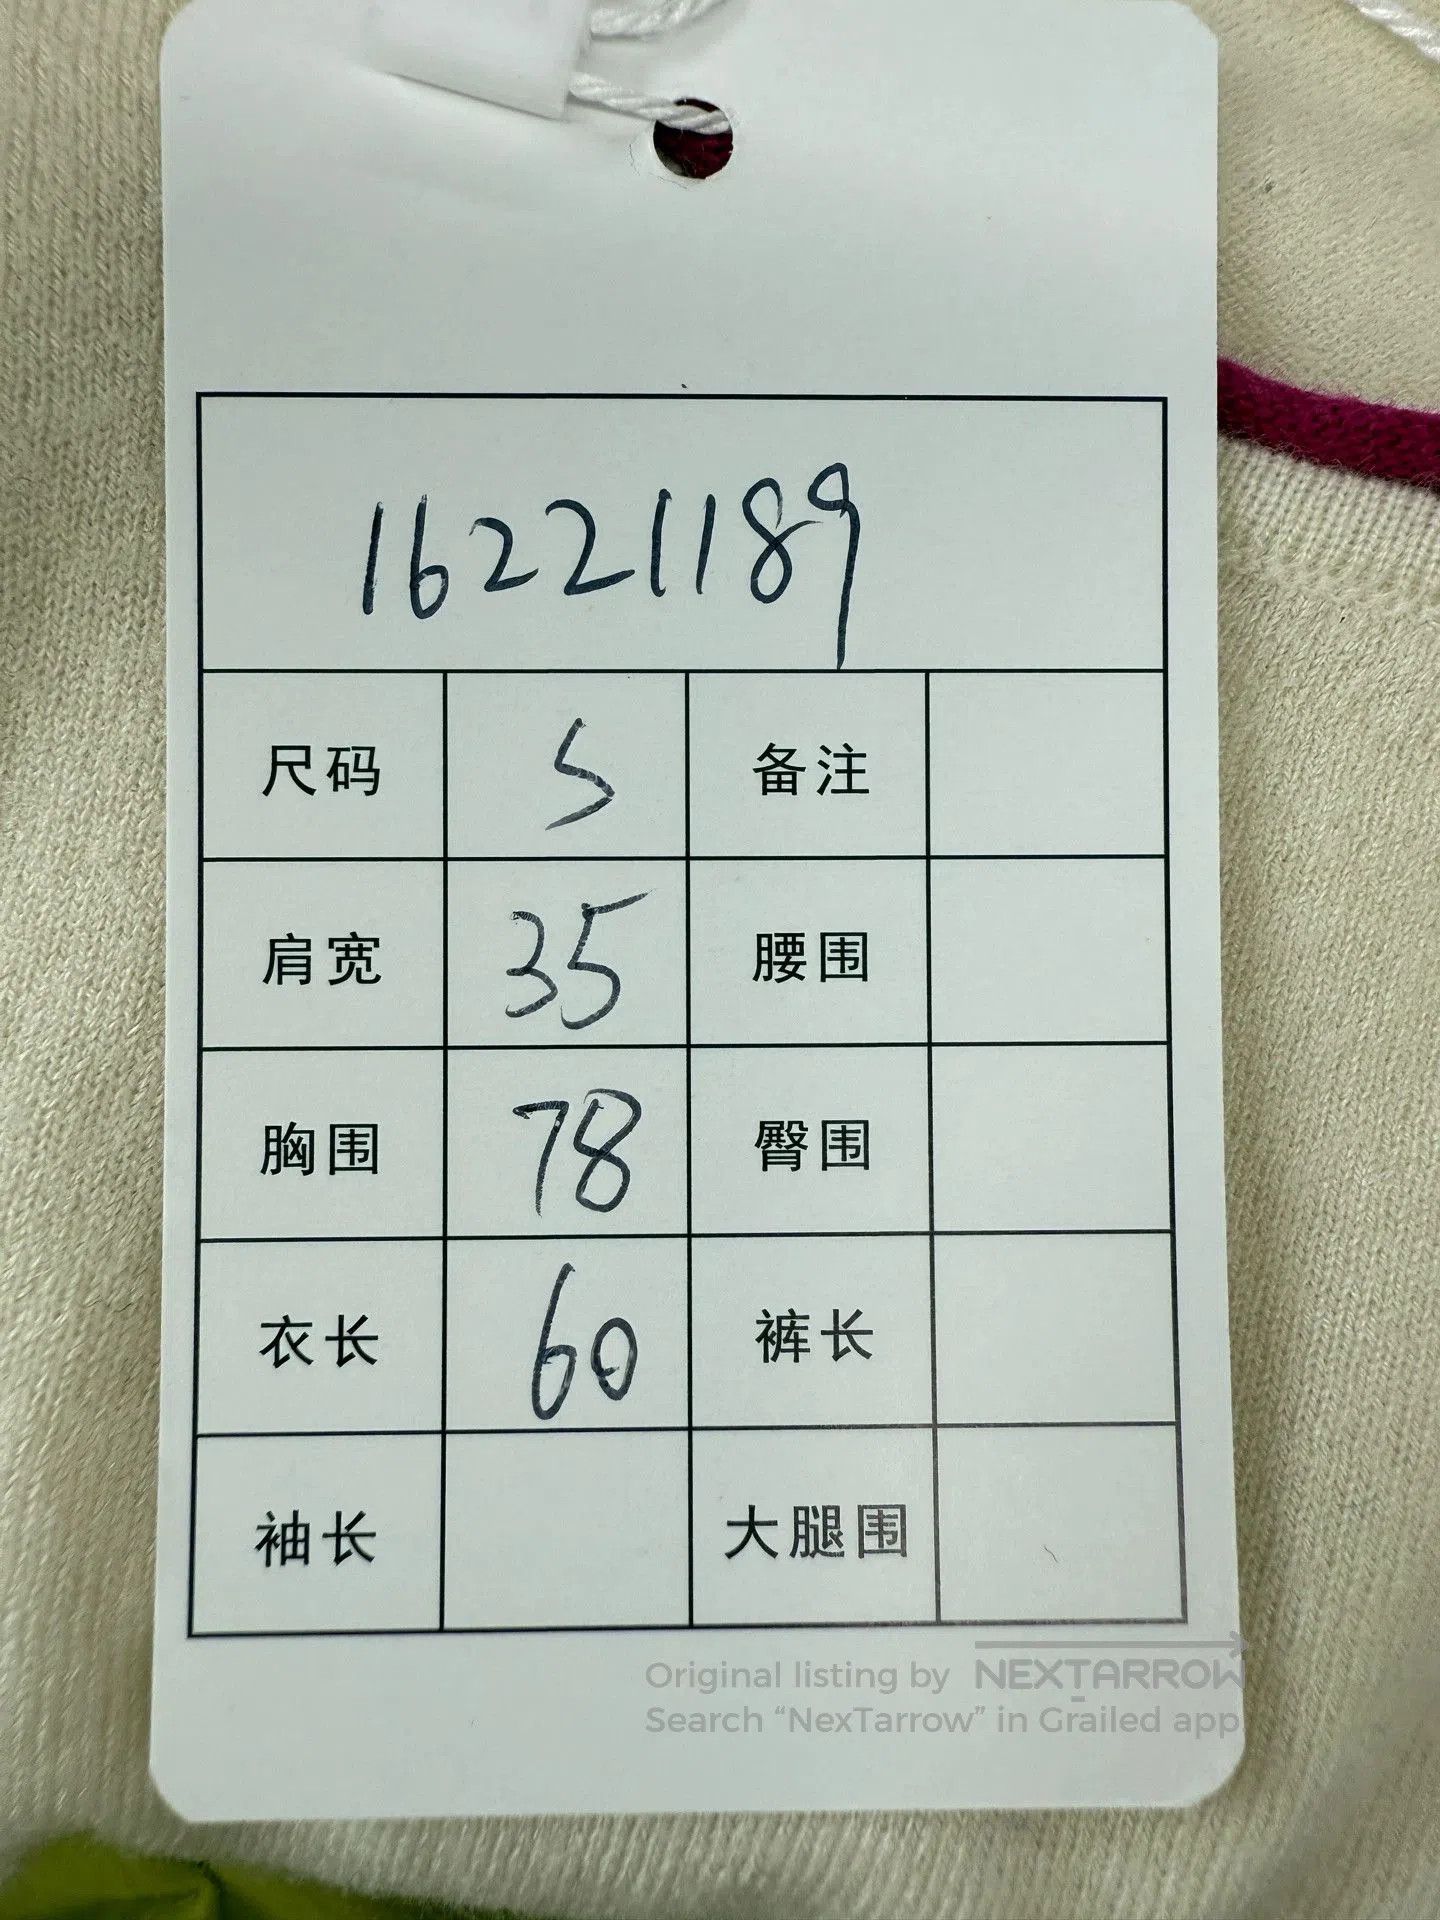 16221189
尺码 S 备注
肩宽 35 腰围
胸围 78 臀围
衣长 60 裤长
袖长 大腿围
Original listing by NEXTARROW
Search “NexTarrow” in Grailed app.